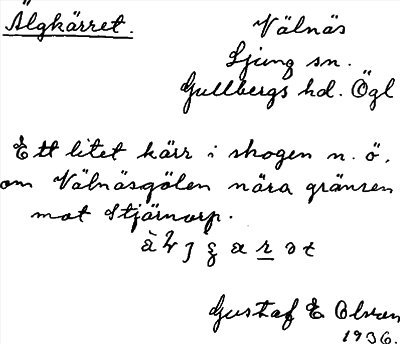 Älgkärret.
Välnäs
Ljung sn.
Gullbergs hd. Ögl
Ett litet kärr i skogen n. ö.
om Välnäsgölen nära gränsen
mot Stjärnorp.
Gustaf E Olson
1936.